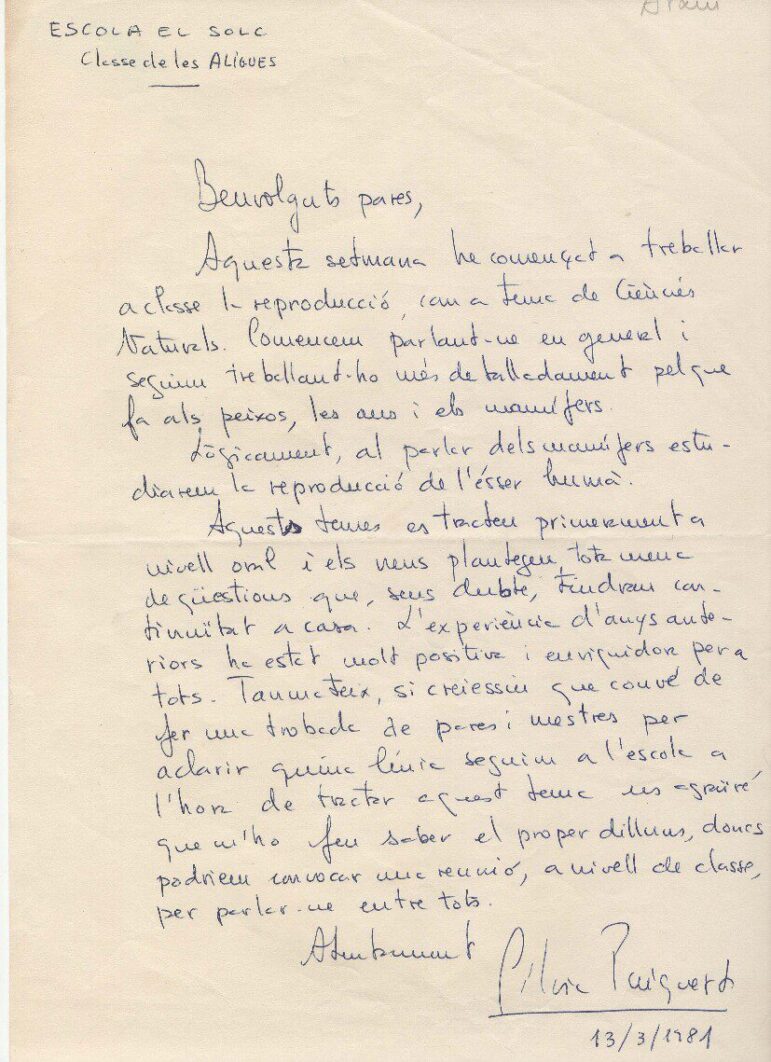 ESCOLA EL SOLC
Classe de les ALIGUES
Benvolguts pares,
Aquesta setmana he començat a treballar
a classe la reproducció, com a tema de Ciències
Naturals. Comencem parlant-ne en general i
seguim treballant-ho més detalladament pel que
fa als peixos, les aus i els mamífers.
Lògicament, al parlar dels mamífers estu-
diarem la reproducció de l'ésser humà.
Aquests temes es tracten primerament a
nivell oral i els nens plantegen, tota mena
de qüestions que, sens dubte, tindran con-
tinuïtat a casa. L'experiència d'anys ante-
riors ha estat molt positiva i enriquidora per a
tots. Tanmateix, si creiessiu que convé de
fer una trobada de pares i mestres per
aclarir quina línia seguim a l'escola a
l'hora de tractar aquest tema us agrairé
que m'ho feu saber el proper dilluns, doncs
podriem convocar una reunió, a nivell de classe,
per parlar-ne entre tots.
Atentament
Puigverd
13/3/1981